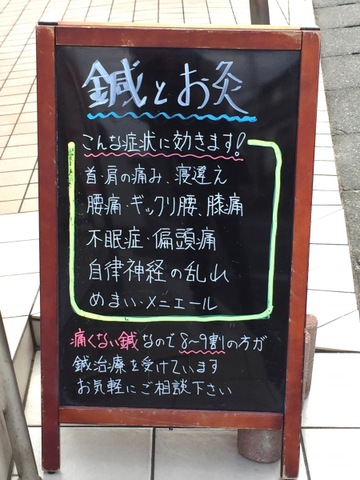 鍼とお灸
こんな症状に効きます!
首・肩の痛み、寝違え
腰痛・ギックリ腰、膝痛
不眠症・偏頭痛
自律神経の乱れ
めまい・メニエール
痛くない鍼なので8~9割の方が
鍼治療を受けています
お気軽にご相談下さい